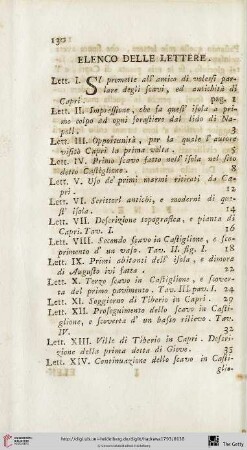 130
ELENCO DELLE LETTERE.
Lett. I. SI promette all'amico di volersi par-
lare degli scavi, ed antichità di
Capri. pag. 1
Lett. II. Impressione, che fa quest' isola a pri-
mo colpo ad ogni forestiere dal lido di Na-
poli. 3
Lett. III. Opportunità, per la quale l'autore
visitò Capri la prima volta. 5
Lett. IV. Primo scavo fatto nell' isola nel sito
detto Castiglione. 8
Lett. V. Uso de' primi marmi ritirati da Ca-
pri. 12
Lett. VI. Scrittori antichi, e moderni di que-
st' isola. 14
Lett. VII. Descrizione topografica, e pianta di
Capri. Tav. I. 16
Lett. VIII. Secondo scavo in Castiglione, e sco-
primento d' un vaso. Tav. II. fig. I. 18
Lett. IX. Primi abitanti dell' isola, e dimora
di Augusto ivi fatta. 22
Lett. X. Terzo scavo in Castiglione, e scover-
ta del primo pavimento. Tav. III. pav. I. 24
Lett. XI. Soggiorno di Tiberio in Capri. 29
Lett. XII. Proseguimento dello scavo in Casti-
glione, e scoverta d' un basso rilievo. Tav.
IV. 32
Lett. XIII. Ville di Tiberio in Capri. Descri-
zione della prima detta di Giove. 35
Lett. XIV. Continuazione dello scavo in Casti-
glio-
The Getty